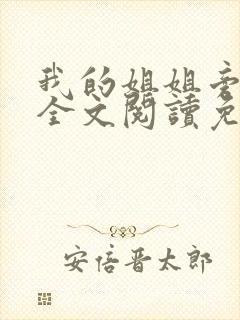 我的姐姐
全文閱讀免
安倍晋太郎